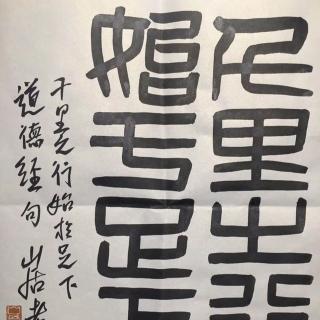 千里之行
始于足下
千里之行始於足下
道德经句 山